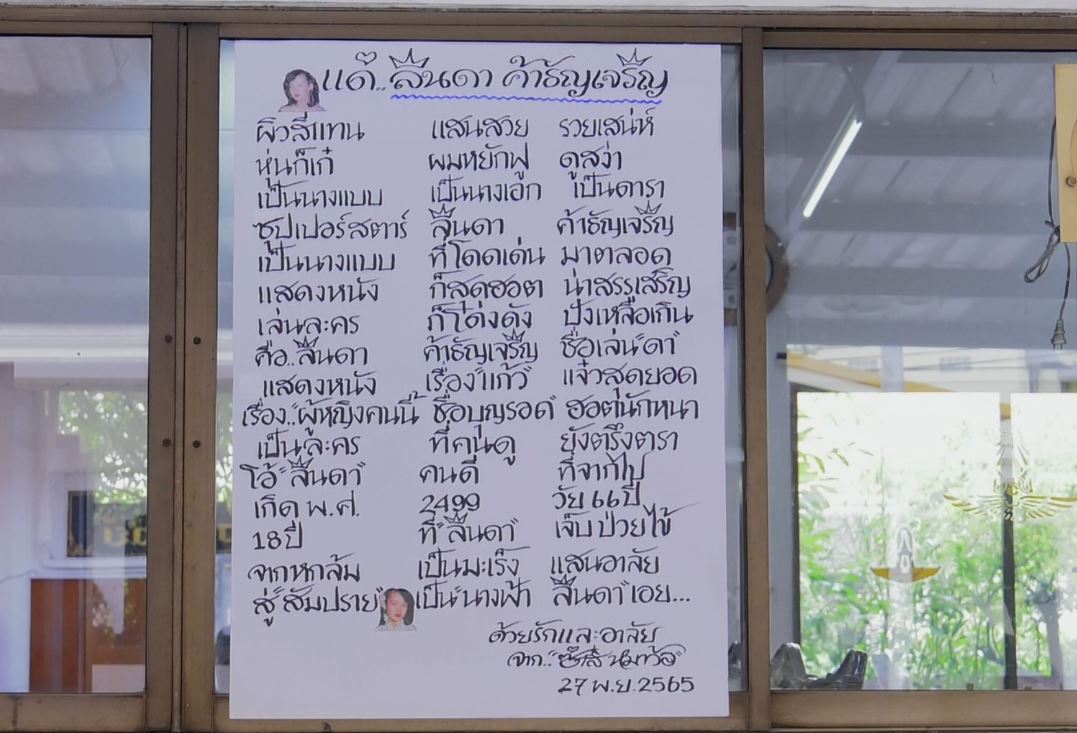 แด่..ลินดา ค้าธัญเจริญ
ผิวสีแทน แสนสวย รวยเสน่ห์
หุ่นก็เก๋ ผมหยักฟู ดูสง่า
เป็นนางแบบ เป็นนางเอก เป็นดารา
ซุปเปอร์สตาร์ ลินดา ค้าธัญเจริญ
เป็นนางแบบ ที่โดดเด่น มาตลอด
แสดงหนัง ก็สุดฮอต น่าสรรเสริญ
เล่นละคร ก็โด่งดัง ปังเหลือเกิน
คือ..ลินดา ค้าธัญเจริญ ชื่อเล่น"ดา"
แสดงหนัง เรื่อง"แก้ว" แจ๋วสุดยอด
เรื่อง.."ผู้หญิงคนนี้ ชื่อบุญรอด" ฮอตนักหนา
เป็นละคร ที่คนดู ยังตรึงตรา
โอ้"ลินดา" คนดี ที่จากไป
เกิด พ.ศ. 2499 วัย 66 ปี
18 ปี ที่"ลินดา" เจ็บป่วยไข้
จากหกล้ม เป็นมะเร็ง แสนอาลัย
สู่"สัมปรายภพ" เป็น"นางฟ้า ลินดา"เอย...
ด้วยรักและอาลัย
จาก..
27 พ.ย. 2565